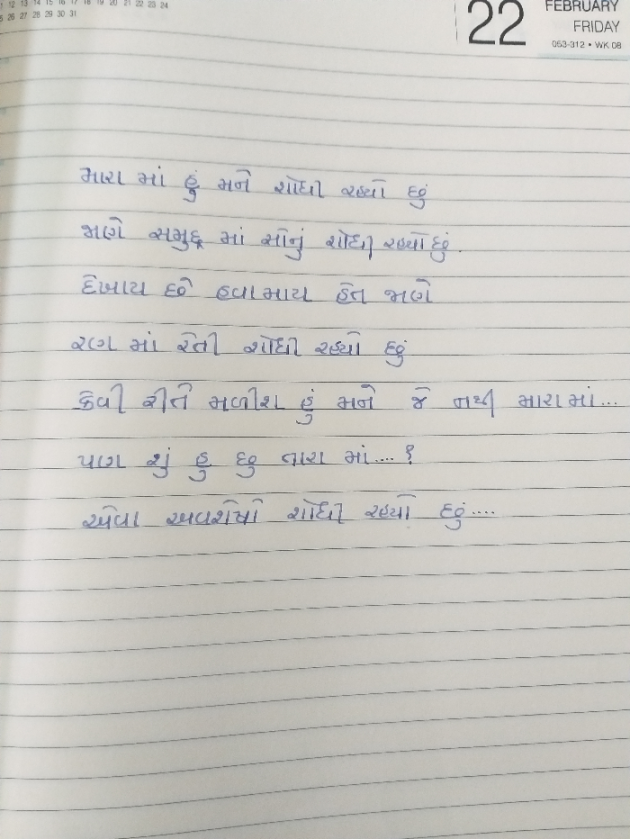 12 13 14 15 16 17 18 19 20 21 22 23 24
26 27 28 29 30 31
22
FEBRUARY
FRIDAY
053-312 • WK 08
મારા માં હું મને શોધી રહ્યો છું
જાણે સમુદ્ર માં સોનું શોધી રહ્યો છું.
દેખાય છે હવામાય હેત જાણે
રણ માં રેતી શોધી રહ્યો છું
કેવી રીતે મળીશ હું મને જે નથી મારા માં...
પણ શું હુ છુ તારા માં....?
એવા અવશેષો શોધી રહ્યો છું....